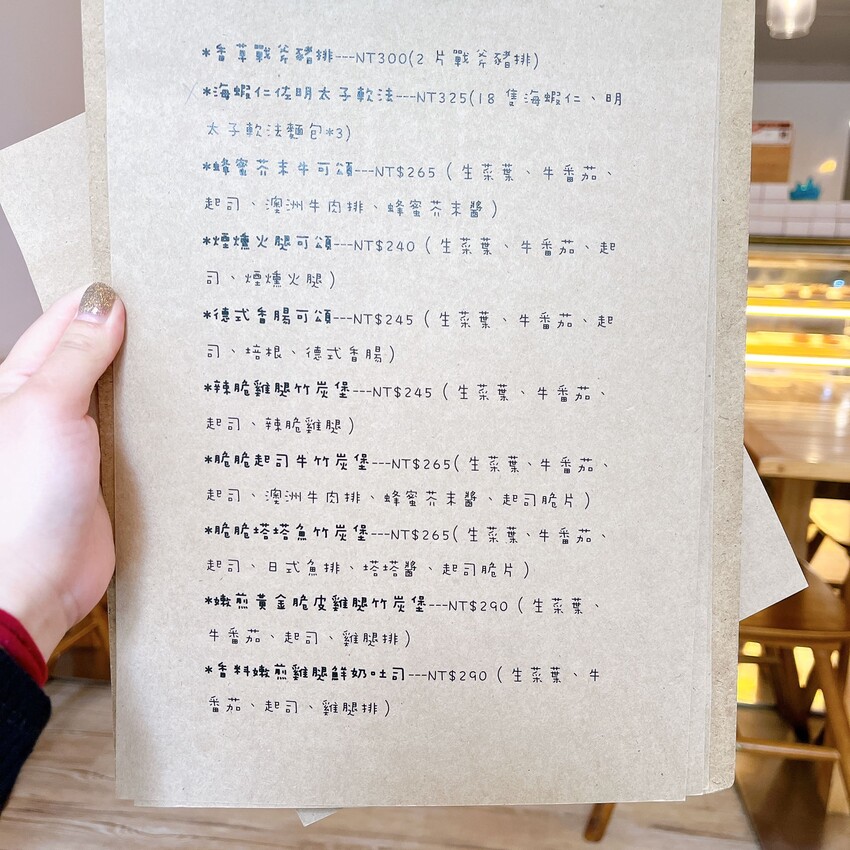 *香草戰斧豬排---NT300(2 片戰斧豬排)
*海蝦仁佐明太子軟法---NT325(18 隻海蝦仁、明
太子軟法麵包*3)
*蜂蜜芥末牛可頌---NT$265 ( 生菜葉、牛番茄、
起司、澳洲牛肉排、蜂蜜芥末醬 )
*煙燻火腿可頌---NT$240 ( 生菜葉、牛番茄、起
司、煙燻火腿 )
*德式香腸可頌---NT$245 ( 生菜葉、牛番茄、起
司、培根、德式香腸 )
*辣脆雞腿竹炭堡---NT$245 ( 生菜葉、牛番茄、
起司、辣脆雞腿 )
*脆脆起司牛竹炭堡---NT$265( 生菜葉、牛番茄、
起司、澳洲牛肉排、蜂蜜芥末醬、起司脆片 )
*脆脆塔塔魚竹炭堡---NT$265( 生菜葉、牛番茄、
起司、日式魚排、塔塔醬、起司脆片 )
*嫩煎黃金脆皮雞腿竹炭堡---NT$290 ( 生菜葉、
牛番茄、起司、雞腿排 )
*香料嫩煎雞腿鮮奶吐司---NT$290 ( 生菜葉、牛
番茄、起司、雞腿排 )